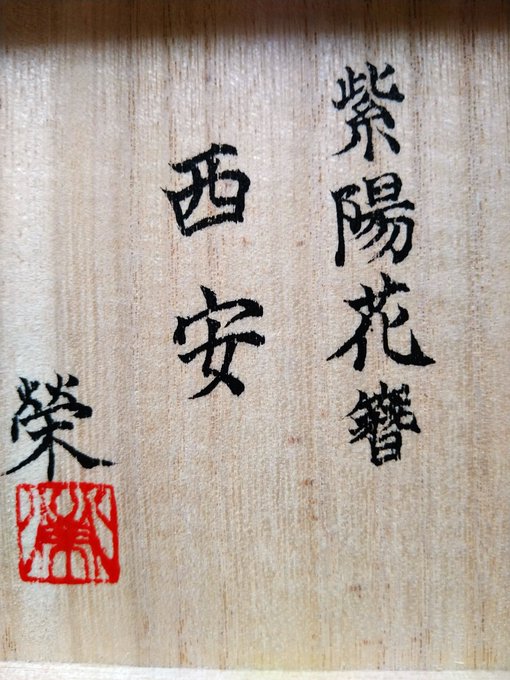 紫陽花簪
西安
榮